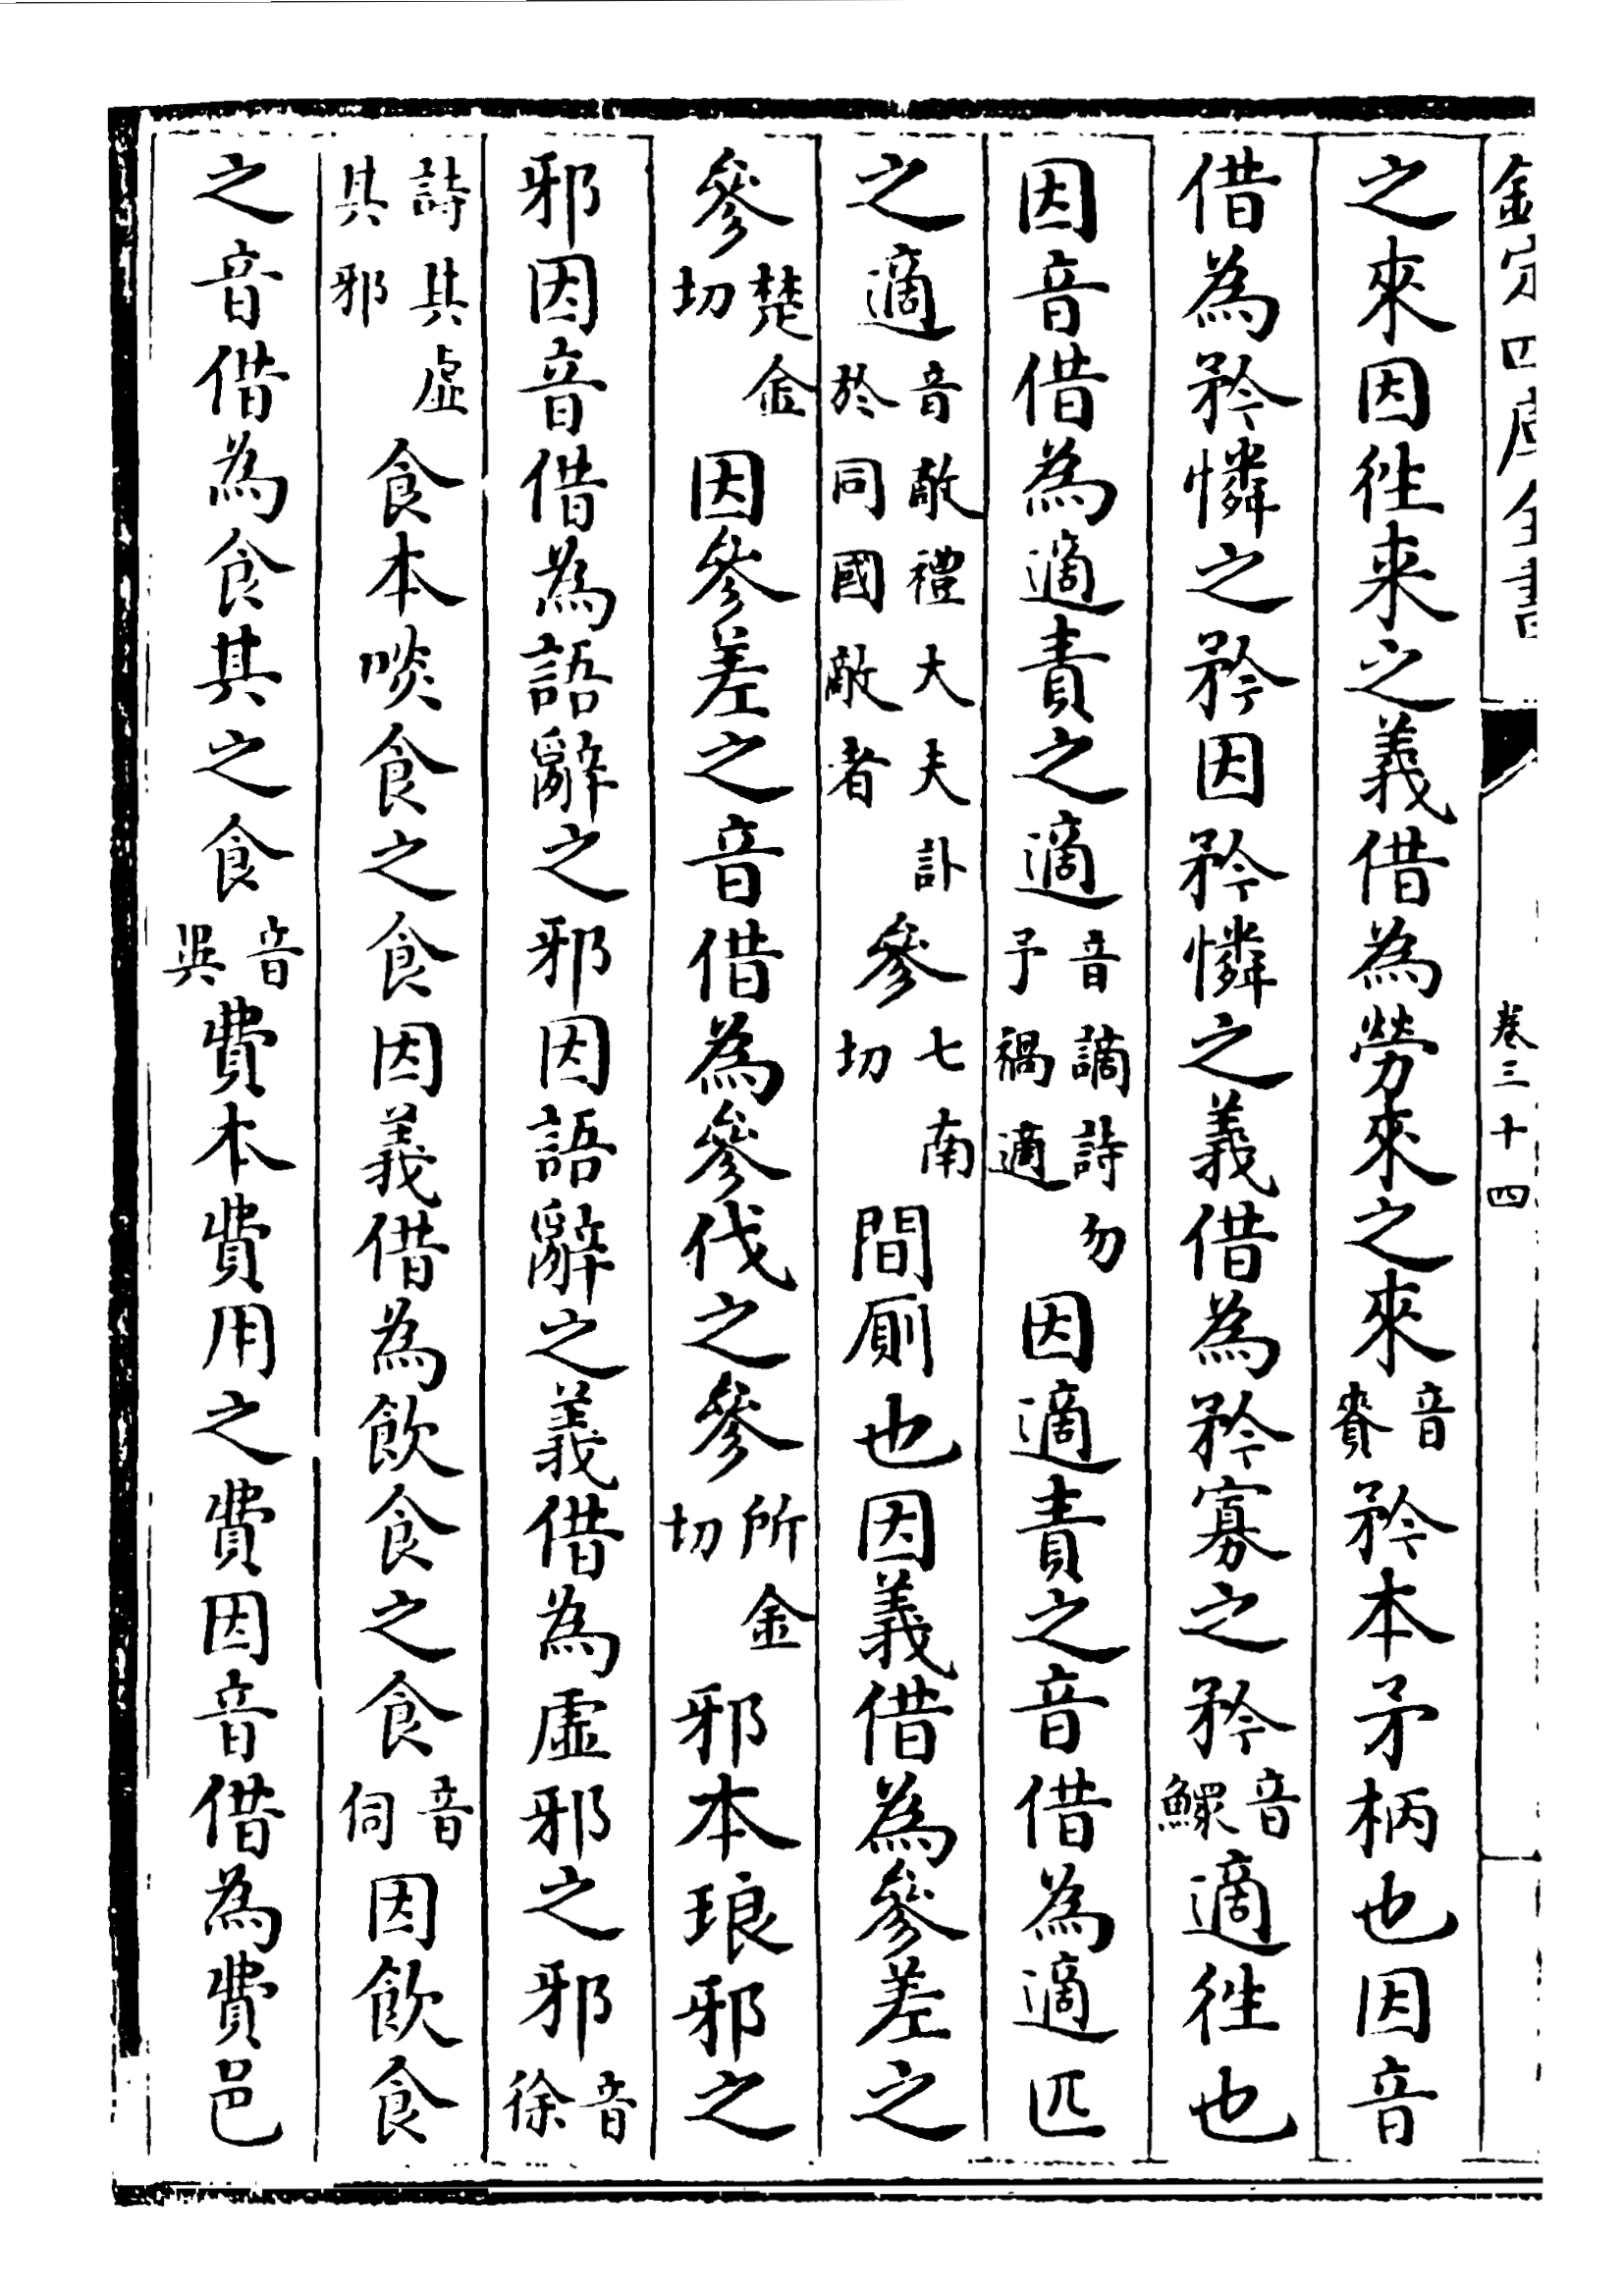 欽定四庫全書 卷三十四
之來因徃来之義借為勞來之來音賚矜本矛柄也因音
借為矜憐之矜因矜憐之義借為矜寡之矜音鰥適徃也
因音借為適責之適音謫詩勿予禍適因適責之音借為適匹
之適音敵禮大夫訃於同國敵者參七南切間厠也因義借為參差之
參楚金切因參差之音借為參伐之參所金切邪本琅邪之
邪因音借為語辭之邪因語辭之義借為虛邪之邪音徐
詩其虛其邪食本啖食之食因義借為飲食之食音伺因飲食
之音借為食其之食音異費本費用之費因音借為費邑